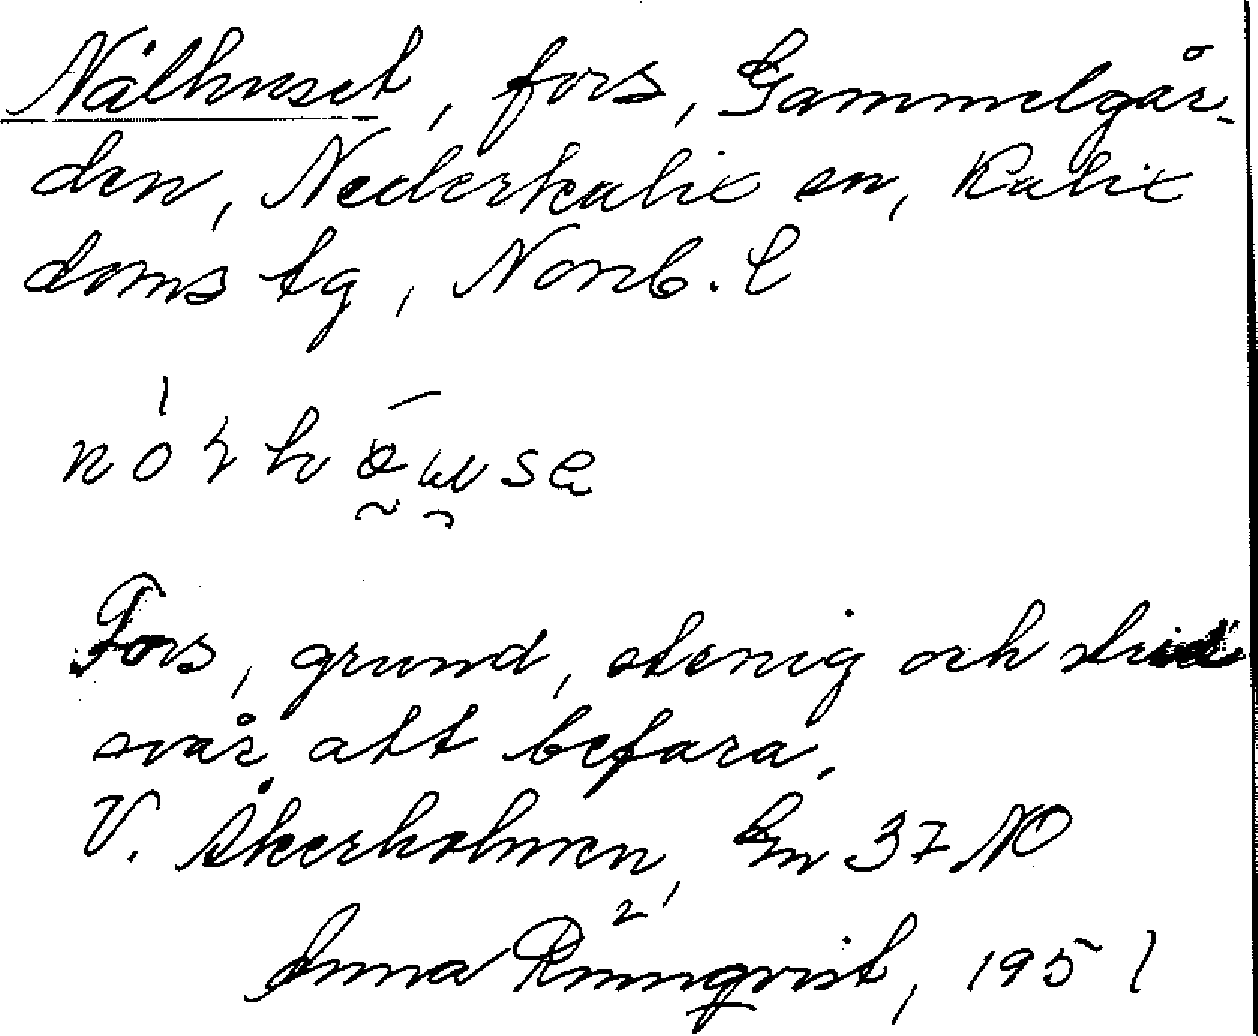 Nålhuset, fors, Gammelgår-
den, Nederkalix sn, Kalix
doms tg, Norrb. l
Fors, grund, stenig och
svår att befara.
V. Åkerholmen, Gm 37 NO
Anna Rönnqvist, 1951